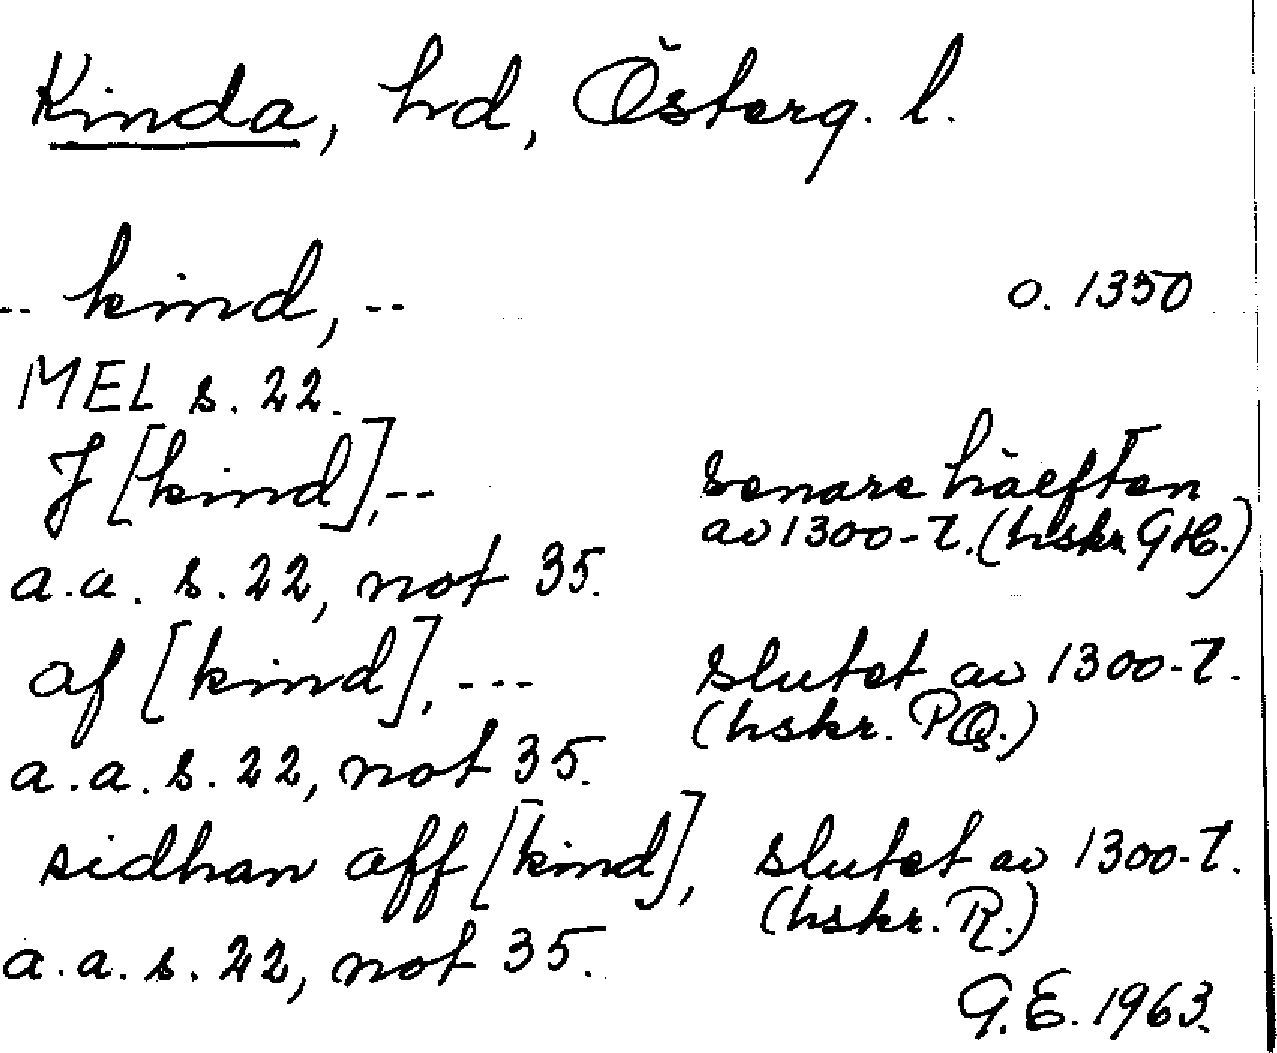 Kinda, hd, Österg. l.
-- kind, -- o. 1350
MEL s. 22.
J [kind], -- senare hälften
av 1300-t. (hskr. GH.)
a.a. s. 22, not 35.
af [kind], --- slutet av 1300-t.
(hskr. PQ.)
a.a. s. 22, not 35.
sidhan aff [kind], slutet av 1300-t.
(hskr. R.)
a.a. s. 22, not 35.
G.E. 1963.